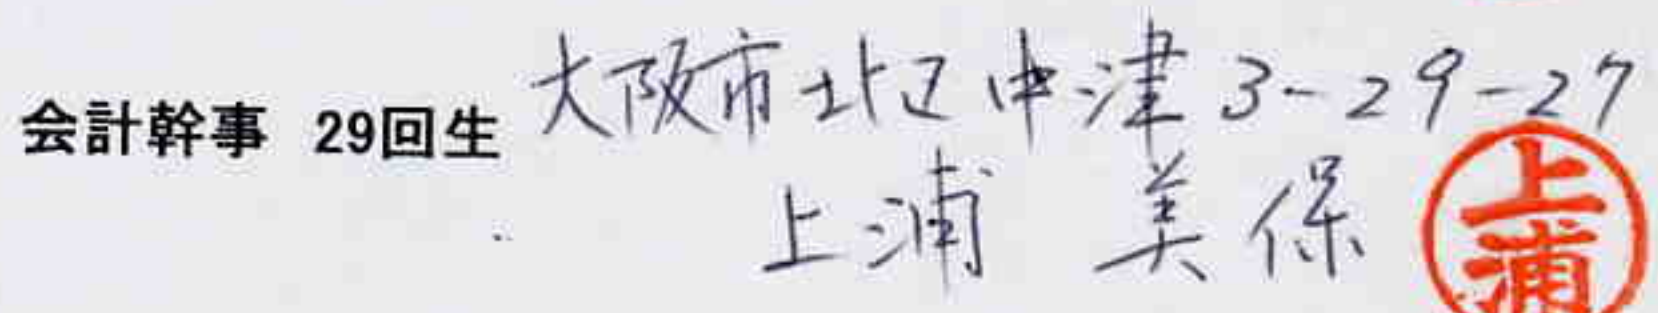 会計幹事 29回生 大阪市北区中津3-29-27
上浦 美保
上浦